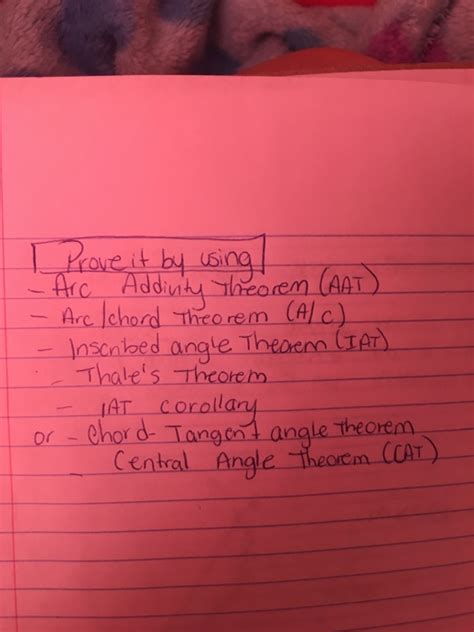 Prove it by using
- Arc Addivity Theorem (AAT)
- Arc/chord Theorem (A/C)
- Inscribed angle Theorem (IAT)
- Thale's Theorem
- IAT corollary
or - Chord-Tangent angle theorem
- Central Angle Theorem (CAT)